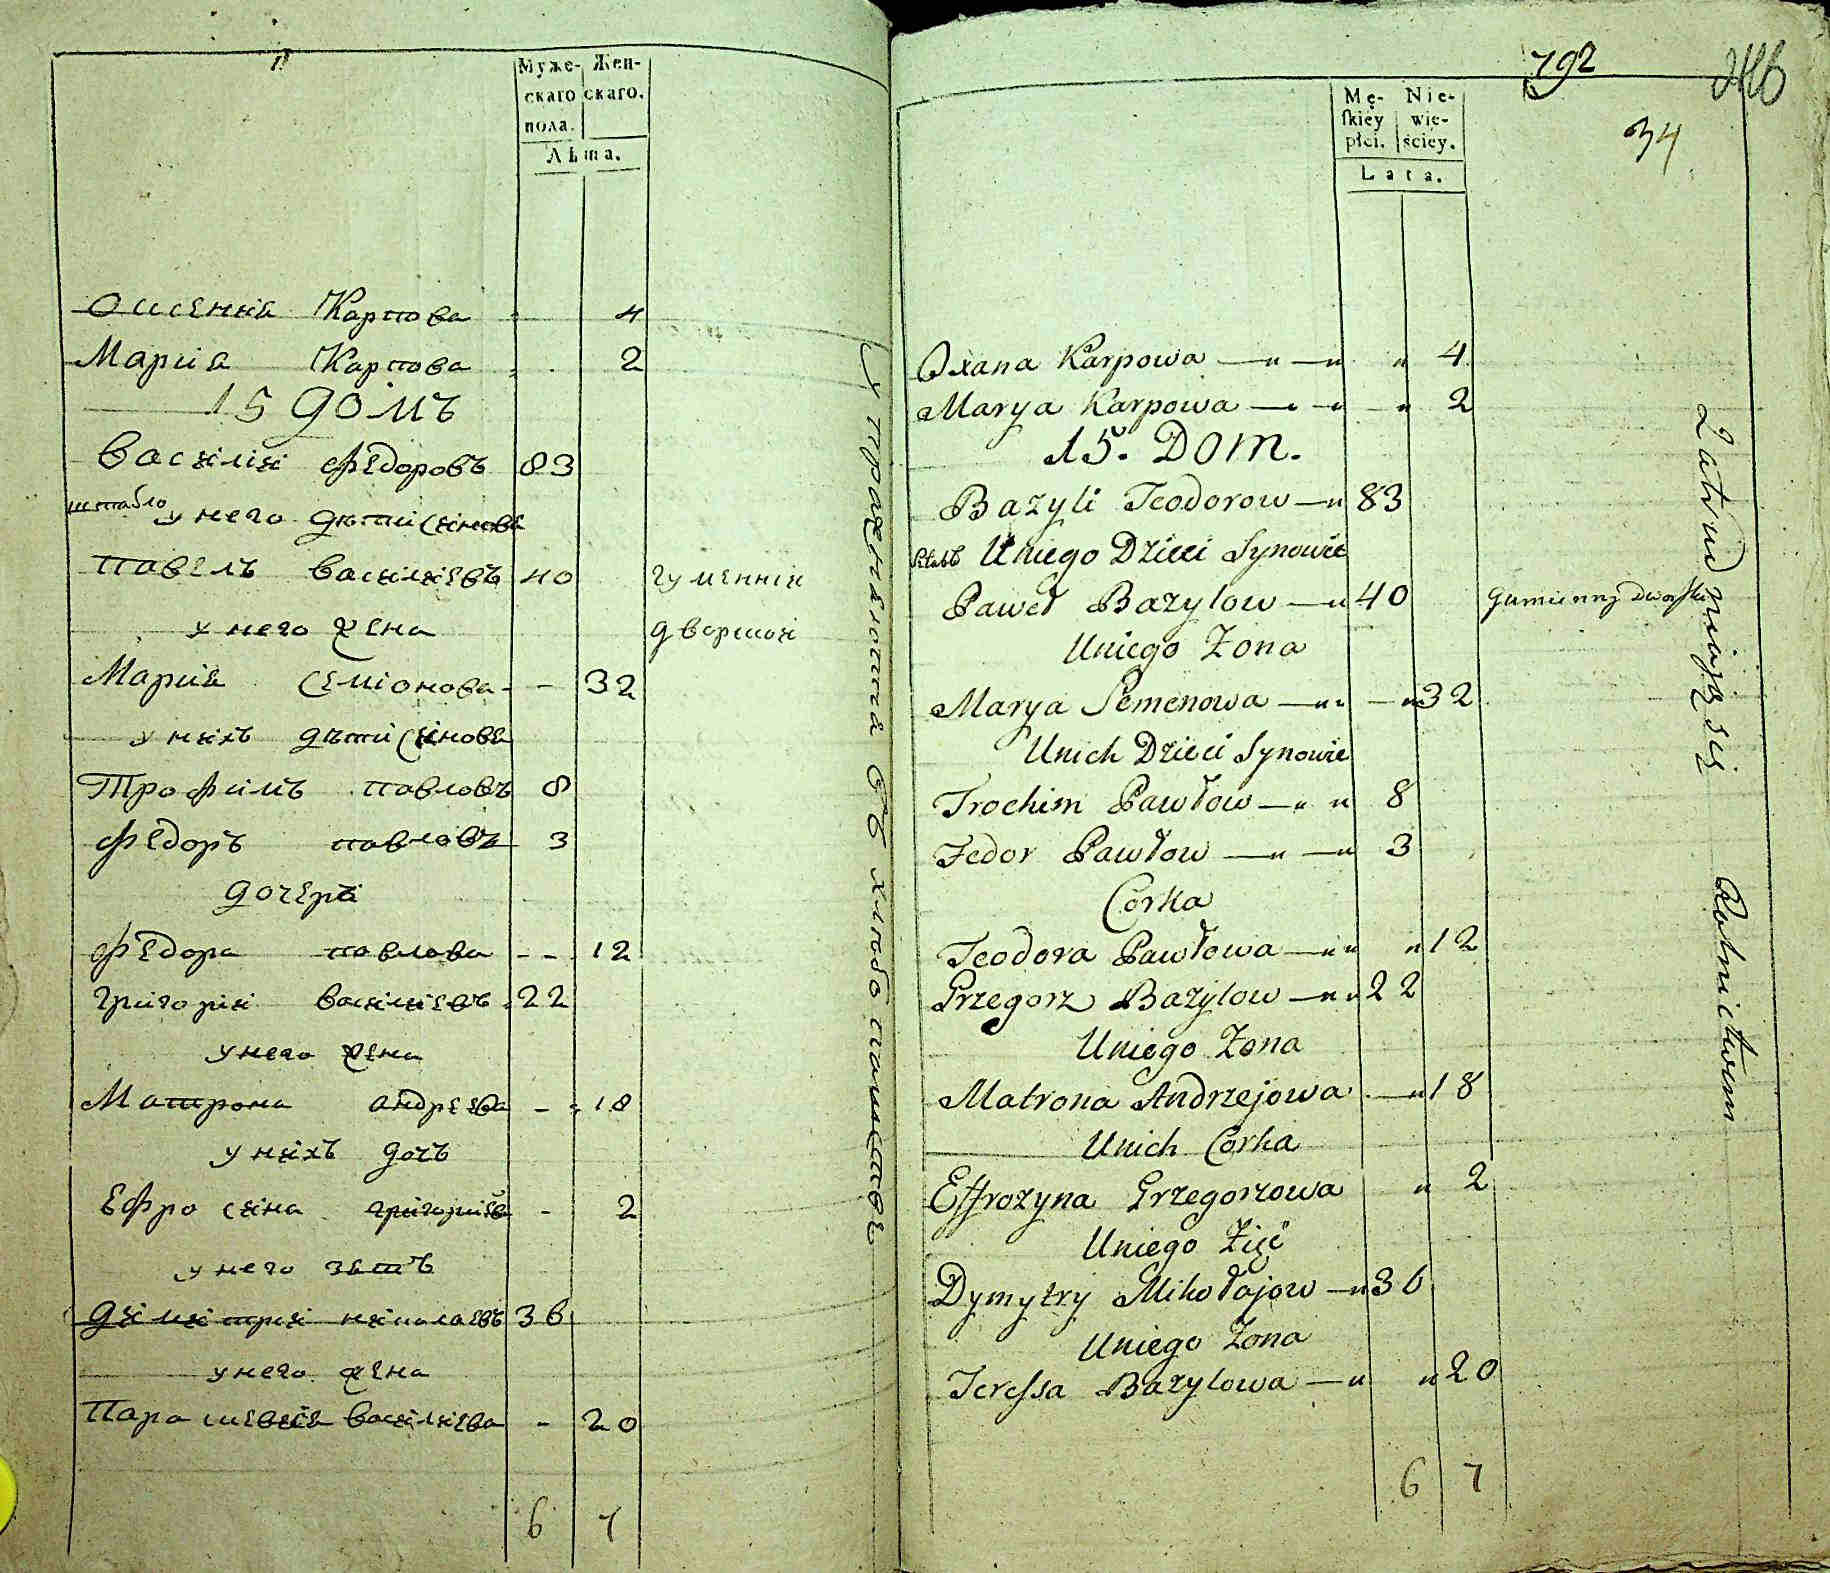 Муже- Жен-
скаго скаго.
пола.
Лѣта.
Оксенія Карпова 4
Мария Карпова 2
15 домъ
Василій Федоровъ 83
у него дѣти синовя
Павелъ Васильевъ 40 гуменній
у него жена дворній
Мария Семіонова - - 32
у нихъ дѣти синовя
Трофимъ Павловъ 8
Федоръ Павловъ 3
дочери
Федора Павлова - - 12
Григорій Васильевъ 22
у него жена
Матрона Андреева - - 18
у нихъ дочъ
Ефросина Григориева - 2
у него зять
Димитрій Николаевъ 36
у него жена
Парасковія Васильева - 20
6 7
упражняются въ хлебопашстве
792
34
Mę- Nie-
ſkiey wie-
płci. ściey.
Lata.
Oxana Karpowa 4
Marya Karpowa 2
15. Dom.
Bazyli Teodorow 83
Uniego Dzieci Synowie
Paweł Bazylow 40 Gumienny Dworski
Uniego Żona
Marya Semenowa 32
Unich Dzieci Synowie
Trochim Pawłow 8
Fedor Pawłow 3
Corka
Teodora Pawłowa 12
Grzegorz Bazylow 22
Uniego Żona
Matrona Andrzejowa 18
Unich Corka
Effrozyna Grzegorzowa 2
Uniego Zięć
Dymytry Mikołajow 36
Uniego Żona
Teressa Bazylowa 20
6 7
Zatrudniają się Rolnictwem